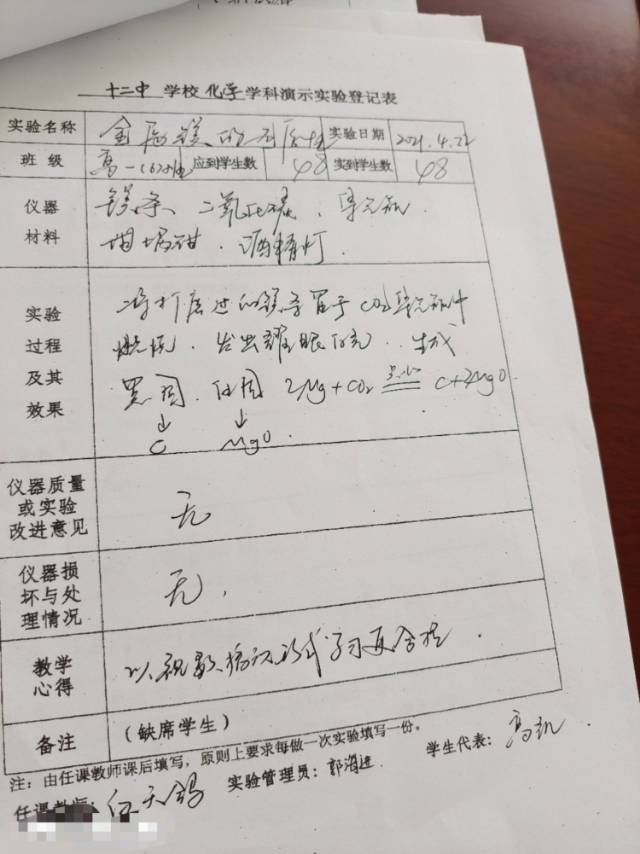 十二中 学校 化学 学科演示实验登记表
实验名称 金属镁的还原性 实验日期 2021.4.22
班级 高一(6)班 应到学生数 48 实到学生数 48
仪器材料
镁条、二氧化碳、集气瓶、
坩埚钳、酒精灯.
实验过程及其效果
将打磨过的镁条置于CO2集气瓶中
燃烧,发出耀眼白光,生成
黑固、白固 2Mg+CO2 点燃 C+2MgO
↓ ↓
C MgO.
仪器质量或实验改进意见 无
仪器损坏与处理情况 无.
教学心得 以视频播放形式
备注 (缺席学生)
注:由任课教师课后填写,原则上要求每做一次实验填写一份。
任课教师: 实验管理员: 学生代表: